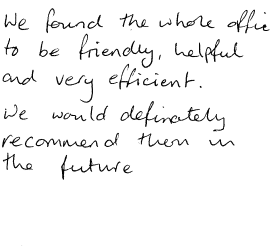 We found the whole offic
to be friendly, helpful
and very efficient.
We would definately
recommend them in
the future